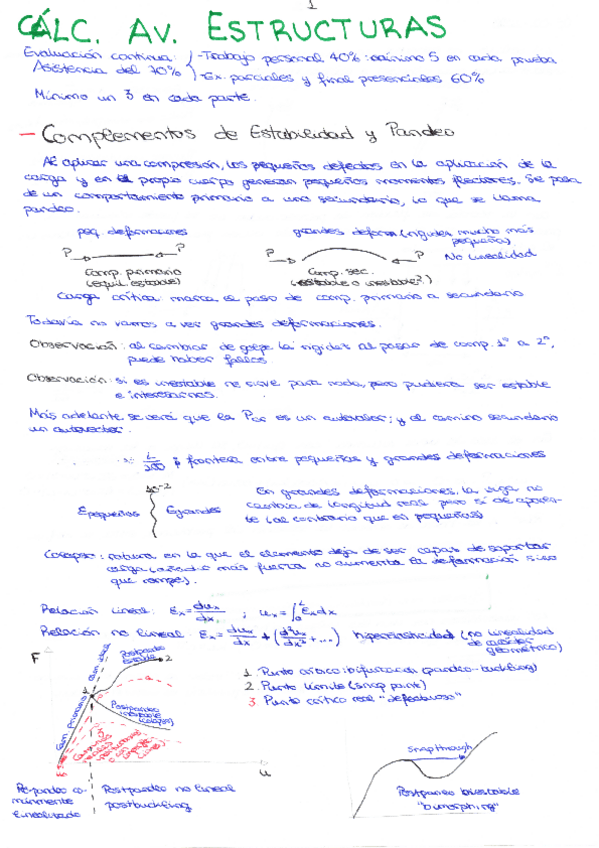 1
CÁLC. AV. ESTRUCTURAS
Evaluación continua: -Trabajo personal 40%: mínimo 5 en cada prueba
Asistencia del 70% -Ex. parciales y final presenciales 60%
Mínimo un 3 en cada parte.
- Complementos de Estabilidad y Pandeo
Al aplicar una compresión, los pequeños defectos en la aplicación de la
carga y en el propio cuerpo generan pequeños momentos flectores. Se pasa
de un comportamiento primario a uno secundario, lo que se llama
pandeo.
peq. deformaciones
grandes deform (rigidez mucho más
pequeña)
P P
P P No linealidad
Comp. primario
(equil. estable)
Comp. sec.
(estable o inestable?)
Carga crítica: marca el paso de comp. primario a secundario
Todavía no vamos a ver grandes deformaciones.
Observación: al cambiar de golpe la rigidez al pasar de comp. 1º a 2º,
puede haber fallos
Observación: si es inestable no sirve para nada, pero pudiera ser estable
e interesarnos.
Más adelante se verá que la Pcr es un autovalor; y el camino secundario
un autovector.
L/200 : frontera entre pequeñas y grandes deformaciones
10^-2
Epequeños Egrandes
En grandes deformaciones, la viga no
cambia de longitud real pero sí de aparen-
te (al contrario que en pequeñas)
Colapso: rotura en la que el elemento deja de ser capaz de soportar
carga (añadir más fuerza no aumenta la deformación sino
que rompe).
Relación lineal: εx = dux/dx ; ux = ∫₀ᴸ εx dx
Relación no lineal: εx = dux/dx + (d²ux/dx² + ...) hiperelasticidad (no linealidad
de carácter
geométrico)
F
Postpandeo
estable
2
1
Cam. primario
Postpandeo
inestable
(colapso)
3
u
1 Punto crítico: bifurcación (pandeo-buckling)
2 Punto límite (snap point)
3 Punto crítico real "defectuoso"
Snapthrough
Postpandeo no lineal
postbuckling
Postpandeo biestable
"bimorphing"